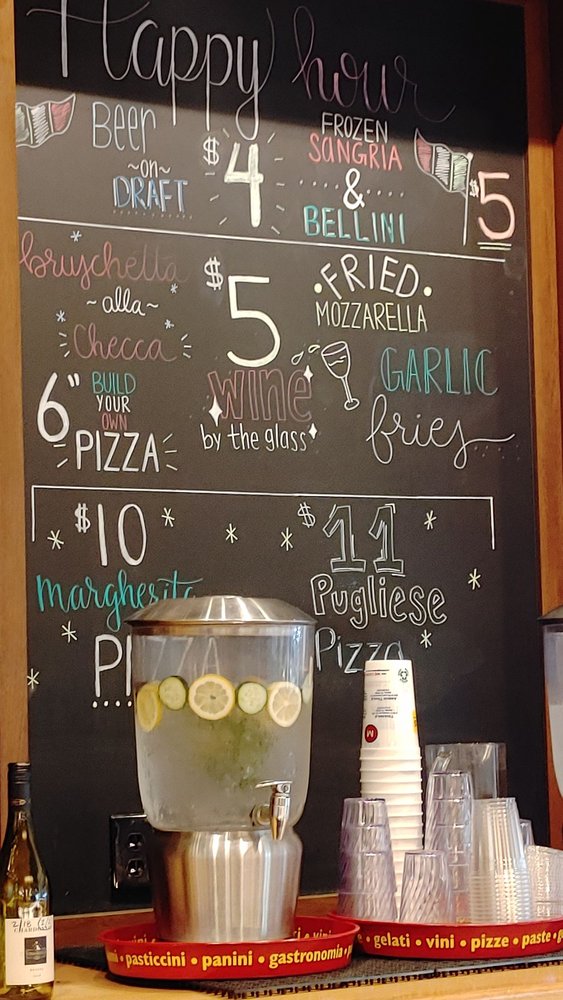 Happy hour
Beer
~on~
DRAFT
$4
FROZEN
SANGRIA
&
BELLINI
$5
bruschetta
~alla~
Checca
6" BUILD
YOUR
OWN
PIZZA
$5
wine
by the glass
FRIED
MOZZARELLA
GARLIC
fries
$10
margherita
$11
Pugliese
Pizza
M
pasticcini • panini • gastronomia •
• gelati • vini • pizze • paste •